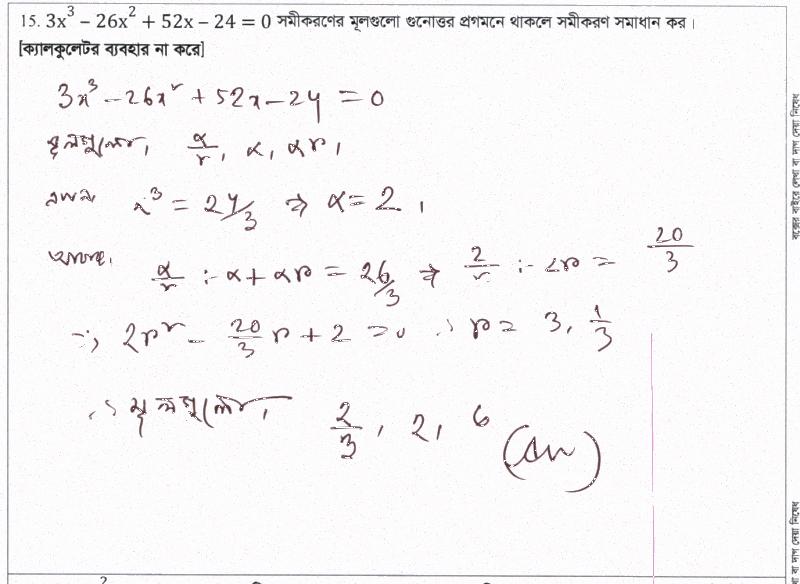 15. 3x³ − 26x² + 52x − 24 = 0 সমীকরণের মূলগুলো গুনোত্তর প্রগমনে থাকলে সমীকরণ সমাধান কর।
[ক্যালকুলেটর ব্যবহার না করে]
3x³ − 26x² + 52x − 24 = 0
মূলগুলো, α/r, α, αr,
α³ = 24/3 ⇒ α = 2,
α/r + α + αr = 26/3 ⇒ 2/r + 2r = 20/3
⇒ 2r² − 20/3 r + 2 = 0 ∴ r = 3, 1/3
∴ মূলগুলো, 2/3, 2, 6 (Ans)
বক্সের বাইরে লেখা বা দাগ দেয়া নিষেধ
বা দাগ দেয়া নিষেধ
2